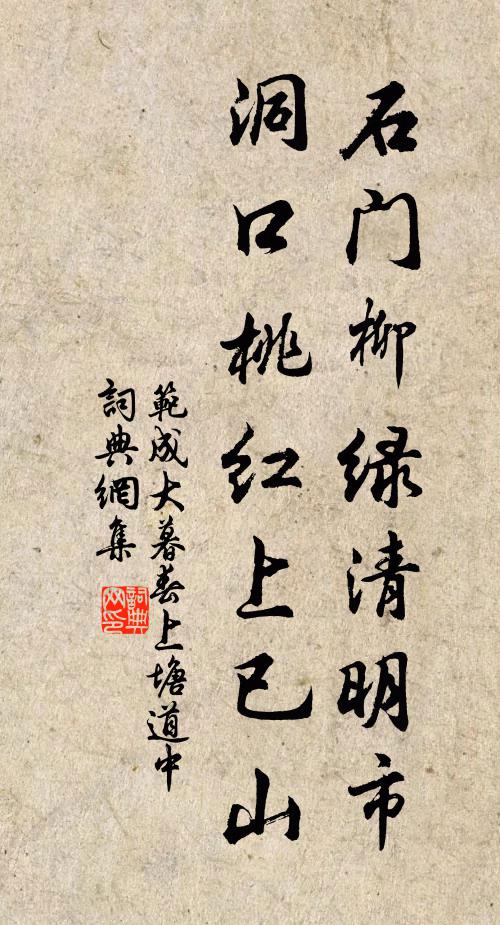 石门柳绿清明市
洞口桃红上巳山
範成大暮春上塘道中
詞典網集
詞典网印